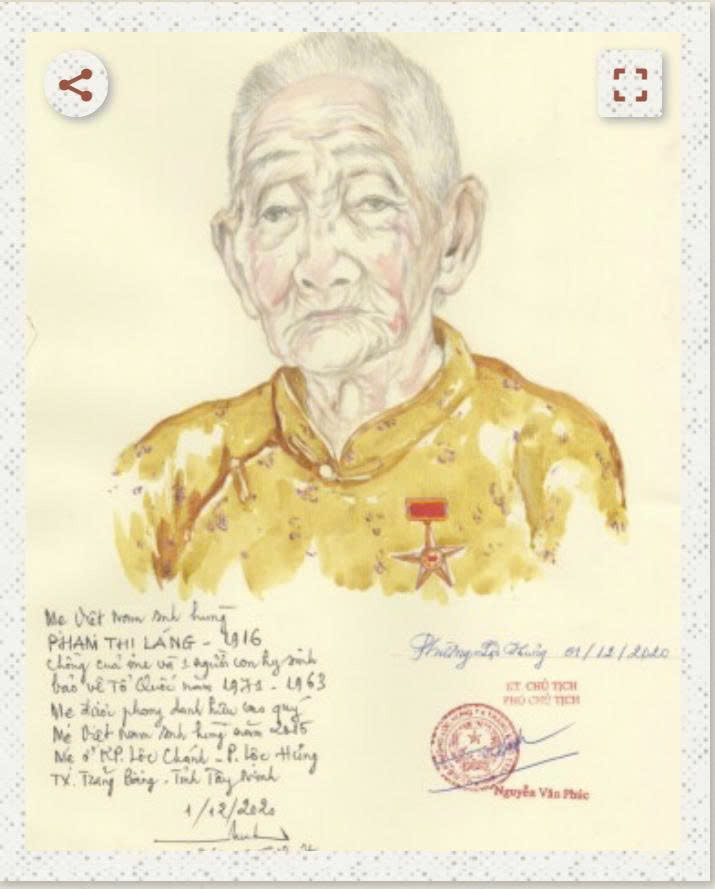 Mẹ Việt Nam Anh hùng
PHẠM THỊ LÁNG - 1916
Chồng của mẹ và 1 người con hy sinh
bảo vệ Tổ Quốc năm 1971 - 1963
Mẹ được phong danh hiệu cao quý
Mẹ Việt Nam Anh hùng năm 2015
Mẹ ở KP. Lộc Chánh - P. Lộc Hưng
TX. Trảng Bàng - Tỉnh Tây Ninh
1/12/2020
Phường Lộc Hưng 01/12/2020
KT. CHỦ TỊCH
PHÓ CHỦ TỊCH
Nguyễn Văn Phúc